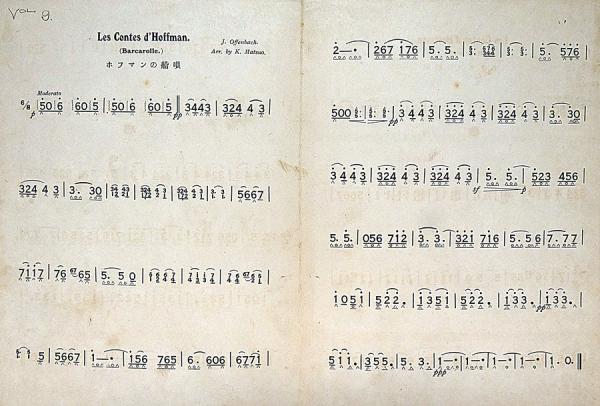 Vol 9.
Les Contes d'Hoffman.
(Barcarolle.)
ホフマンの船唄
J. Offenbach.
Arr. by K. Matsuo.
Moderato
6/8 p 50 6 | 60 5 | 50 6 | 60 5 || pp 3443 | 324 4 3 |
324 4 3 | 3. 30 | 5667 |
7117 | 76 67 65 | 5. 5 0 |
5 | 5667 | 1—• | 156 765 | 6. 606 | 6771 |
2—• | 267 176 | 5. 5. | 5. 576 |
500 | pp 3 4 4 3 | 324 4 3 | 324 4 3 | 3. 30 |
3 4 4 3 | 324 4 3 | 324 4 3 | sf 5. 5. | p 523 456 |
5. 5. | 056 712 | 3. 3. | 321 716 | 5. 5 6 | 7. 77 |
1051 | 522. | 1351 | 522. | 133. | pp 133. |
511. | 355. | 5. 3. | ppp 1—• | 1—• | 1—• | 1—• | 1. 0. ||